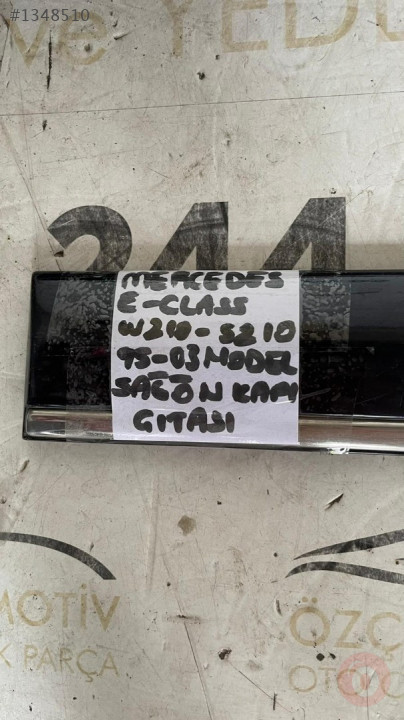 #1348510
YEDE
244
MERCEDES
E-CLASS
W210-S210
95-03 MODEL
SAĞ ÖN KAPI
ÇITASI
MOTİV
K PARÇA
ÖZÇ
OTO